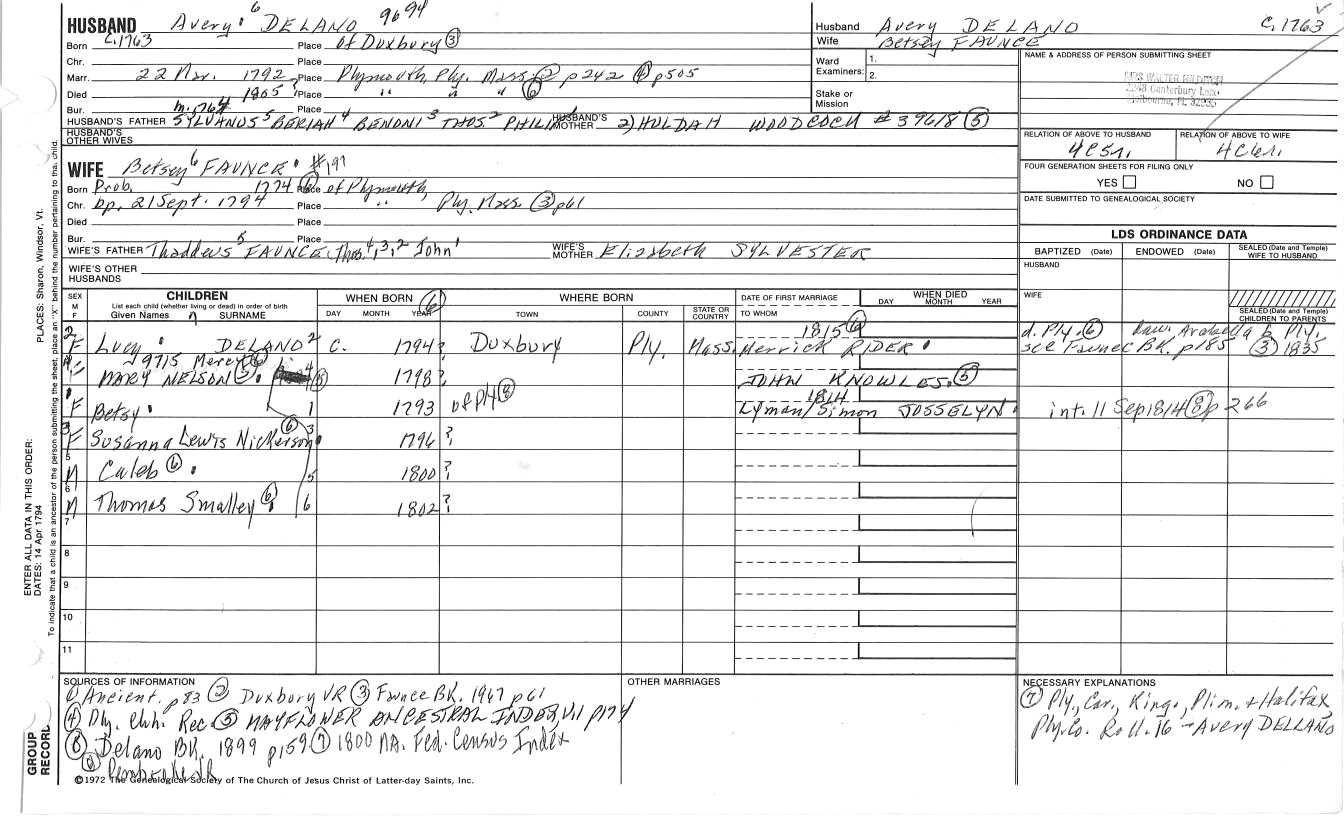 HUSBAND Avery⁶ DELANO 9694
Born c.1763 Place of Duxbury ③
Chr. Place
Marr. 22 Mar. 1792 Place Plymouth, Ply. Mass. ② p242 ④ p505
Died 1805? Place " " " ⑥
Bur. Place
HUSBAND'S FATHER SYLVANUS⁵ BERIAH⁴ BENONI³ THOS² PHILIP¹ HUSBAND'S MOTHER 2) HULDAH WOODCOCK #39618 ⑤
HUSBAND'S OTHER WIVES
WIFE Betsey⁶ FAUNCE #197
Born Prob. 1774 ⑥ Place of Plymouth,
Chr. bp. 21 Sept. 1794 Place " Ply. Mass ③ p61
Died Place
Bur. Place
WIFE'S FATHER Thaddeus⁵ FAUNCE, Thos.⁴,³,² John¹ WIFE'S MOTHER Elizabeth SYLVESTER
WIFE'S OTHER HUSBANDS
Husband Avery DELANO C.1763
Wife Betsey FAUNCE
Ward 1.
Examiners: 2.
Stake or Mission
NAME & ADDRESS OF PERSON SUBMITTING SHEET
MRS WALTER
Canterbury Lane
Melbourne, FL 32935
RELATION OF ABOVE TO HUSBAND RELATION OF ABOVE TO WIFE
4C5r. 4C6r.
FOUR GENERATION SHEETS FOR FILING ONLY
YES NO
DATE SUBMITTED TO GENEALOGICAL SOCIETY
LDS ORDINANCE DATA
BAPTIZED (Date) ENDOWED (Date) SEALED (Date and Temple) WIFE TO HUSBAND
HUSBAND
WIFE
SEALED (Date and Temple) CHILDREN TO PARENTS
SEX M F CHILDREN List each child (whether living or dead) in order of birth Given Names SURNAME WHEN BORN ⑥ DAY MONTH YEAR WHERE BORN TOWN COUNTY STATE OR COUNTRY DATE OF FIRST MARRIAGE TO WHOM WHEN DIED DAY MONTH YEAR
2 F Lucy DELANO 2 C. 1794? Duxbury Ply. Mass. 1815 ⑥ Merrick RIDER d. Ply. ⑥ dau. Arabella b. Ply. see Faunce BK. p185 ③ 1835
9715 Mercy ⑥
MARY NELSON ⑤ 4 ⑤ 1798? JOHN KNOWLES ⑤
1 F Betsy 1 1793 of P ⑧ 1814 Lyman/Simon JOSSELYN int. 11 Sep 1814 ⑧ p 266
3 F Susanna Lewis Nickerson ⑥ 3 1796?
5 M Caleb ⑥ 5 1800?
6 M Thomas Smalley ⑥ 6 1802?
7
8
9
10
11
SOURCES OF INFORMATION
① Ancient. p83 ② Duxbury VR ③ Faunce BK. 1967 p61
④ Ply. Chh. Rec. ⑤ MAYFLOWER ANCESTRAL INDEX, V.1 p174
⑥ Delano BK. 1899 p159 ⑦ 1800 MA. Fed. Census Index
⑧ Pembroke VR
OTHER MARRIAGES
NECESSARY EXPLANATIONS
⑦ Ply., Car., King., Plim. & Halifax,
Ply. Co. Roll. 16 - Avery DELLANO
©1972 The Genealogical Society of The Church of Jesus Christ of Latter-day Saints, Inc.
GROUP RECORD
ENTER ALL DATA IN THIS ORDER:
DATES: 14 Apr 1794
PLACES: Sharon, Windsor, Vt.
To indicate that a child is an ancestor of the person submitting the sheet, place an "X" behind the number pertaining to that child.